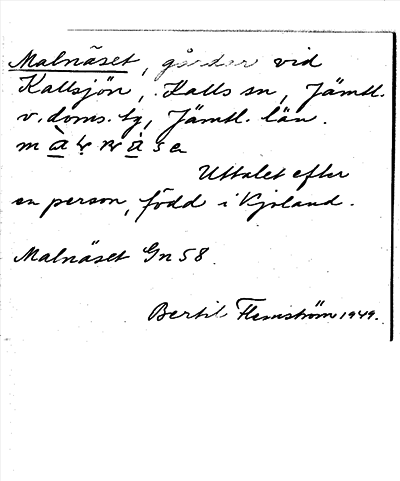 Malnäset, gårdar vid
Kallsjön, Kalls sn, Jämtl.
v. doms. tg, Jämtl. län.
Uttalet efter
en person, född i Kjoland.
Malnäset Gn 58.
Bertil Flemström 1949.